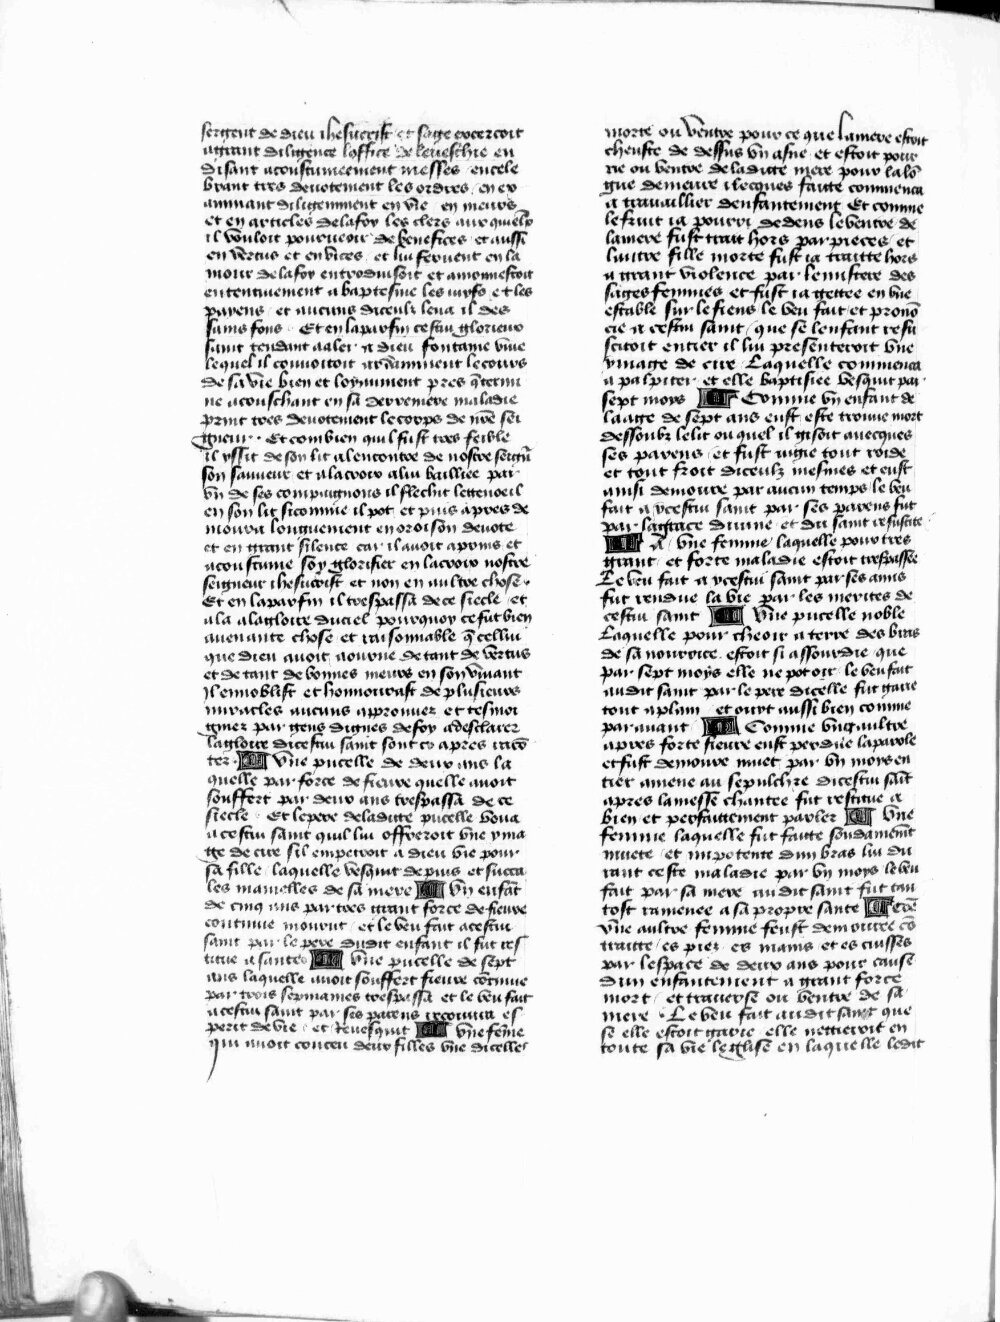 sergent de dieu ihesucrist et sage excercoit
a grant diligence loffice de leueschie en
disant acoustumeement messes en cele
brant tres deuotement les ordres en ex
aminant diligemment en vie en meurs
et en articles de la foy les clers aux quelx
il vouloit pourueoir de benefices et aussi
en vertus et en vices et lui feruent en la
mour de la foy entroduisoit et amonnestoit
ententiuement a baptesme les iuyfs et les
payens et aucuns diceulx leua il des
sains fons Et en la parfin cestui glorieux
saint tendant a aler a dieu fontaine viue
lequel il conuoitoit ardamment le cours
de sa vie bien et loyaument pres q̄ termi
ne acouschant en sa derreniere maladie
print tres deuotement le corps de nr̄e sei
gneur Et combien quil fust tres feible
il yssit de son lit a lencontre de nostre seign̄r
son sauueur et a la croix a lui bailliee par
vn de ses compaignons il flechit le genoeil
en son lit si comme il pot et puis apres de
moura longuement en oroison deuote
et en grant silence car il auoit apris et
acoustume soy glorifier en la croix nostre
seigneur ihesucrist et non en aultre chose
Et en la parfin il trespassa de ce siecle et
ala a la gloire du ciel pourquoy ce fut bien
auenante chose et raisonnable q̄ cellui
que dieu auoit aourne de tant de vertus
et de tant de bonnes meurs en son viuant
Il ennoblist et honnourast de plusieurs
miracles aucuns approuuer et tesmoi
gnier par gens dignes de foy a desclairer
la gloire dicestui saint sont cy apres raco
ter Vne pucelle de deux ans la
quelle par force de fieure quelle auoit
souffert par deux ans trespassa de ce
siecle Et le pere de la dite pucelle voua
a cestui saint quil lui offreroit vne yma
ge de cire sil empetroit a dieu vie pour
sa fille laquelle vesquit depuis et succa
les mamelles de sa mere Vn enfāt
de cinq ans par tres grant force de fieure
continue mourut et le veu fait a cestui
saint par le pere dudit enfant il fut res
titue a sante Vne pucelle de sept
ans laquelle auoit souffert fieure cōtinue
par trois sepmaines trespassa et le veu fait
a cestui saint par ses parens recouura es
perit de vie et reuesquit Vne fēme
qui auoit conceu deux filles vne dicelles
morte ou ventre pour ce que la mere estoit
cheuste de dessus vn asne et estoit pour
rie ou ventre de la dite mere pour la lō
gue demeure ilecques faite commenca
a trauaillier denfantement Et comme
le fruit ia pourri dedens le ventre de
la mere fust trait hors par pieces et
lautre fille morte fust ia traitte hors
a grant violence par le mistere des
sages femmes et fust ia gettee en vne
estable sur le fiens le veu fait et pronō
cie a cestui saint que se lenfant resu
scitoit entier il lui presenteroit vne
ymage de cire Laquelle commenca
a palpiter et elle baptisiee vesquit par
sept moys Comme vn enfant de
laage de sept ans eust este trouue mort
dessoubz le lit ou quel il gisoit auecques
ses parens et fust iugie tout roide
et tout froit diceulz mesmes et eust
ainsi demoure par aucun temps le veu
fait a ycestui saint par ses parens fut
par la grace diuine et du saint resuscite
A vne femme laquelle pour tres
grant et forte maladie estoit trespassee
Le veu fait a ycestui saint par ses amis
fut rendue la vie par les merites de
cestui saint Vne pucelle noble
Laquelle pour cheoir a terre des bras
de sa nourrice estoit si assourdie que
par sept moys elle ne pot oir le veu fait
audit saint par le pere dicelle fut garie
tout a plain et ouyt aussi bien comme
par auant Comme vng aultre
apres forte fieure eust perdue la parole
et fust demoure muet par vn moys en
tier amene au sepulchre dicestui saīt
apres la messe chantee fut restitue a
bien et perfaittement parler Vne
femme laquelle fut faitte soudainemēt
muete et impotente dun bras lui du
rant ceste maladie par vn moys le veu
fait par sa mere audit saint fut tan
tost ramenee a sa propre sante
vne aultre femme feust demouree cō
traitte es piez es mains et es cuisses
par lespace de deux ans pour cause
dun enfantement a grant force
mort et trauerse ou ventre de sa
mere Le veu fait audit saint que
se elle estoit garie elle nettieroit en
toute sa vie leglise en laquelle ledit